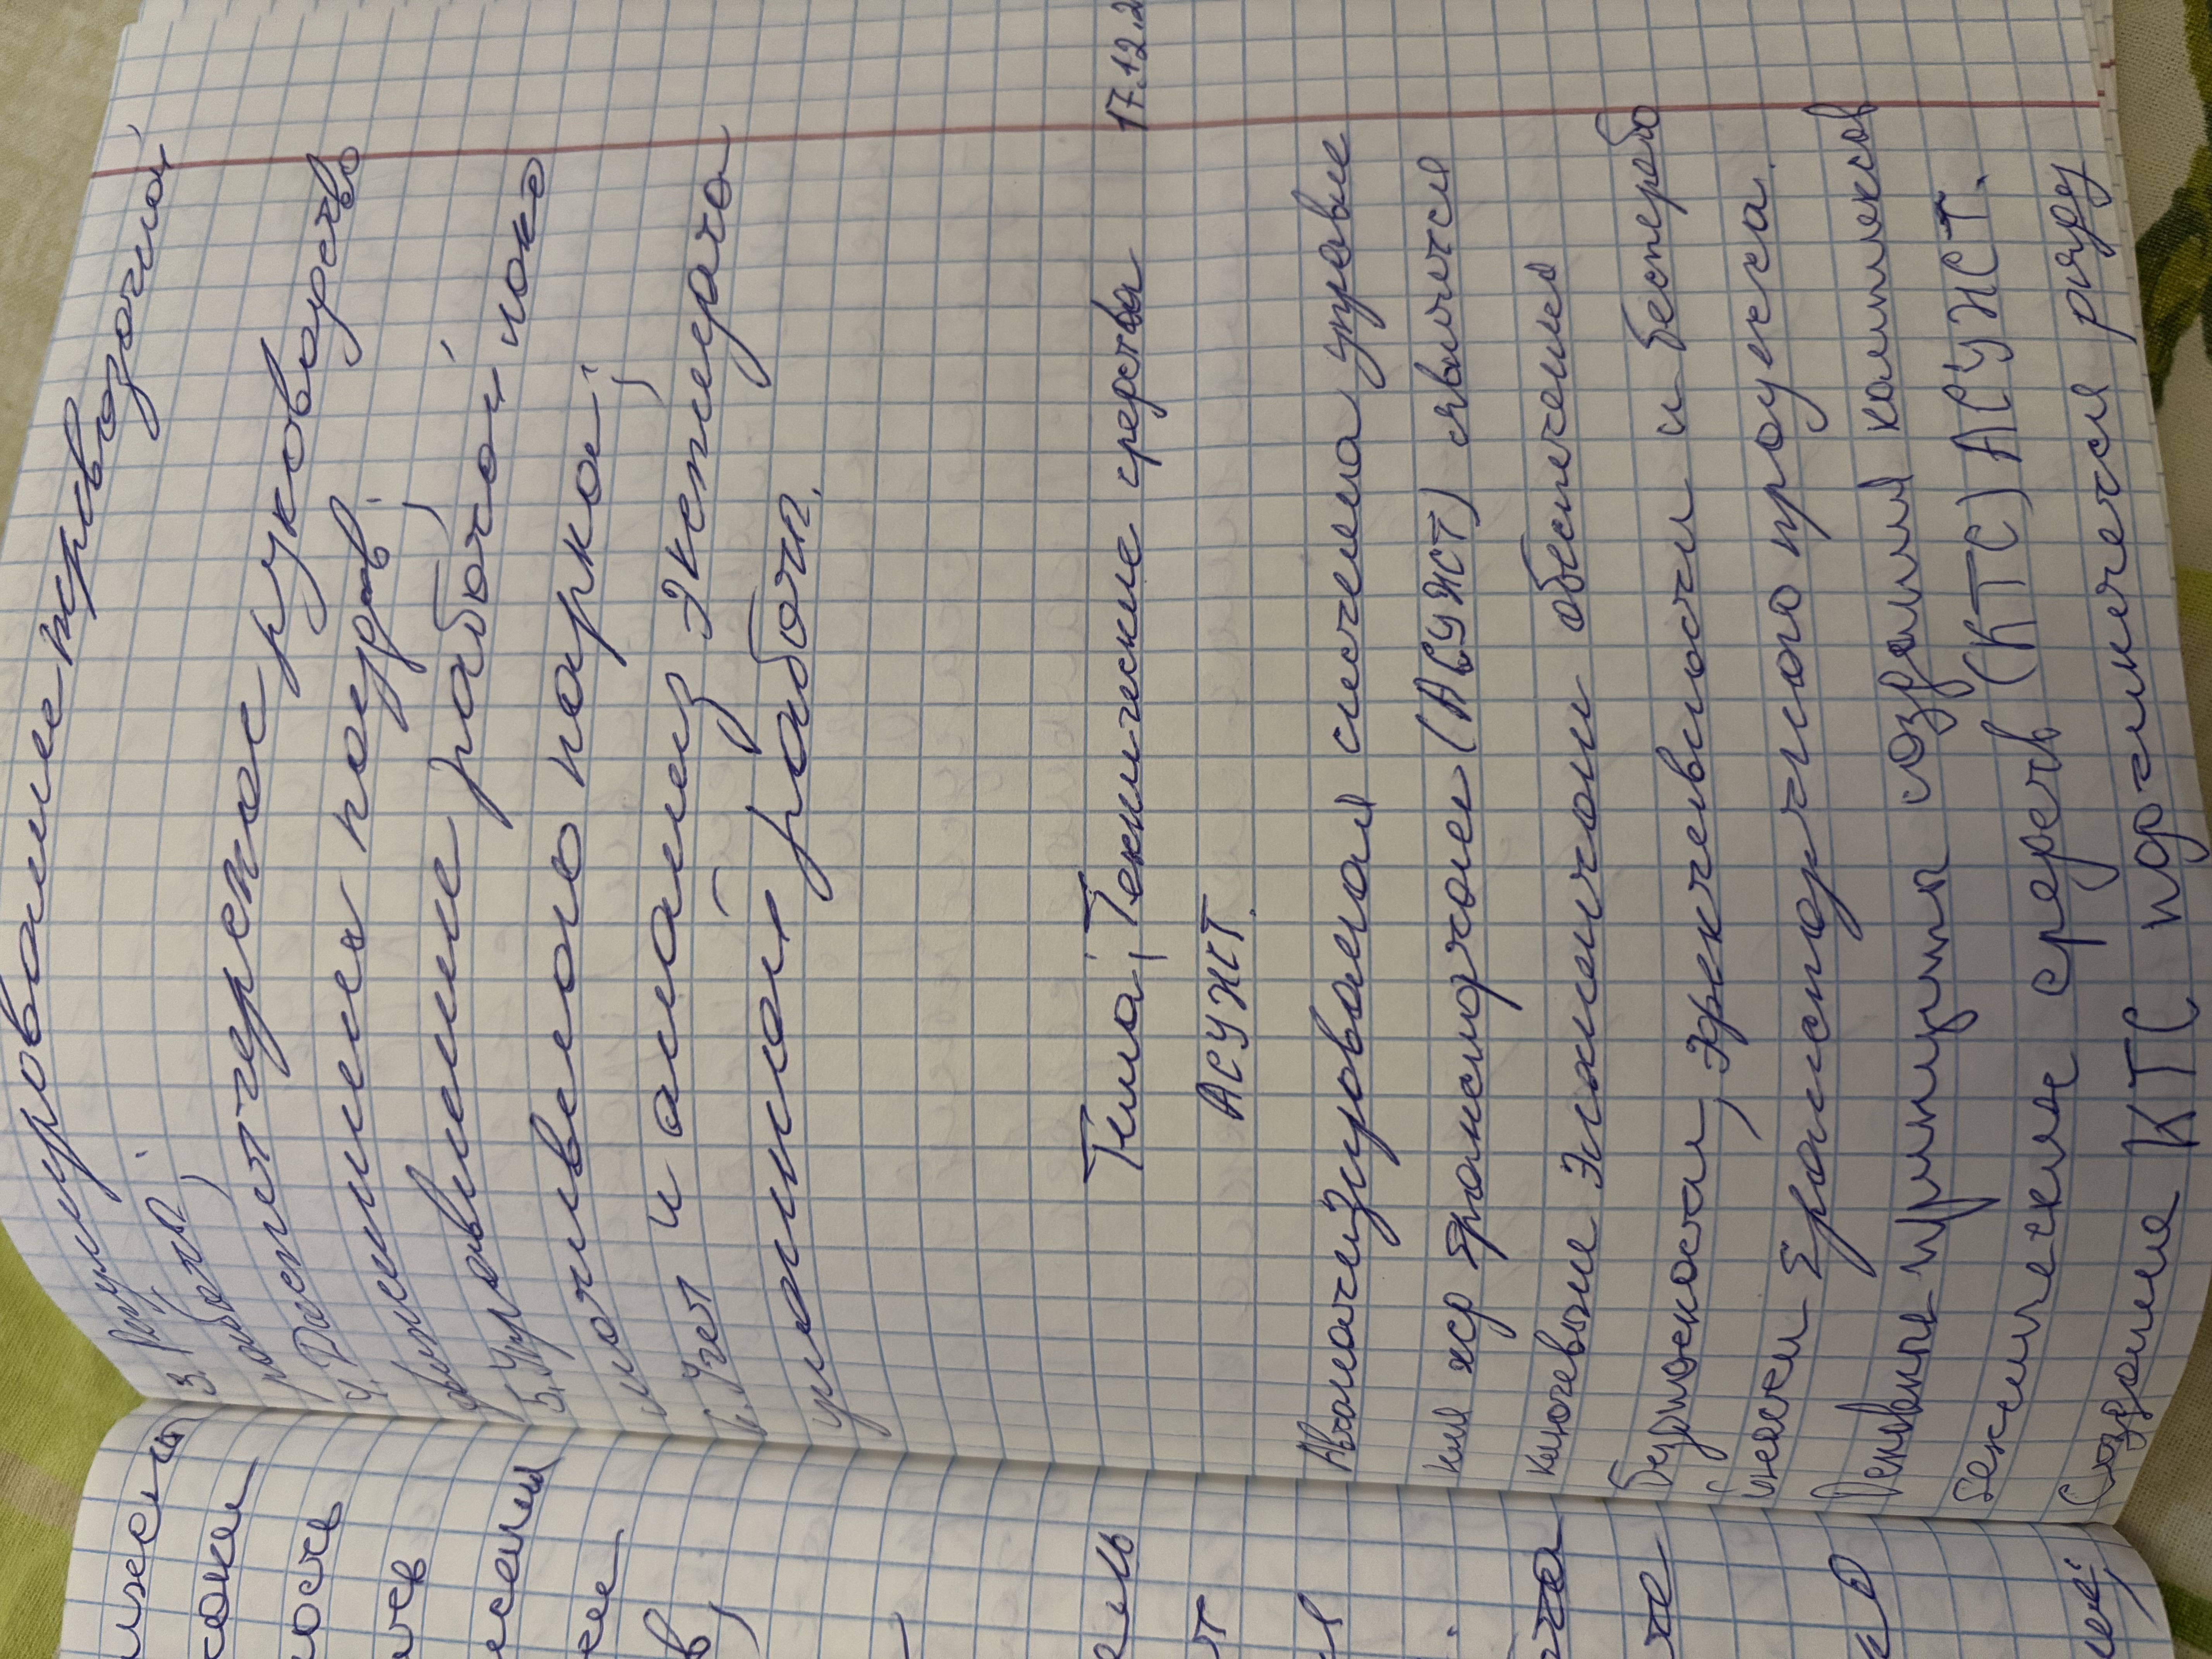 3. Регулирование перевозочной
работы;
4. Диспетчерское руководство
движением поездов;
5. Управление работой локо
мотивного парка;
6. Учет и анализ эксплуата
ционной работы.
17.12.2
Тема: Технические средства
АСУЖТ.
Автоматизированная система управле
ния жд транспортом (АСУЖТ) является
ключевыми элементами обеспечения
безопасности, эффективности и беспербо
транспортного процесса.
принципы создания комплексов
технических средств (КТС) АСУЖТ.
Создание КТС подчиняется ряду